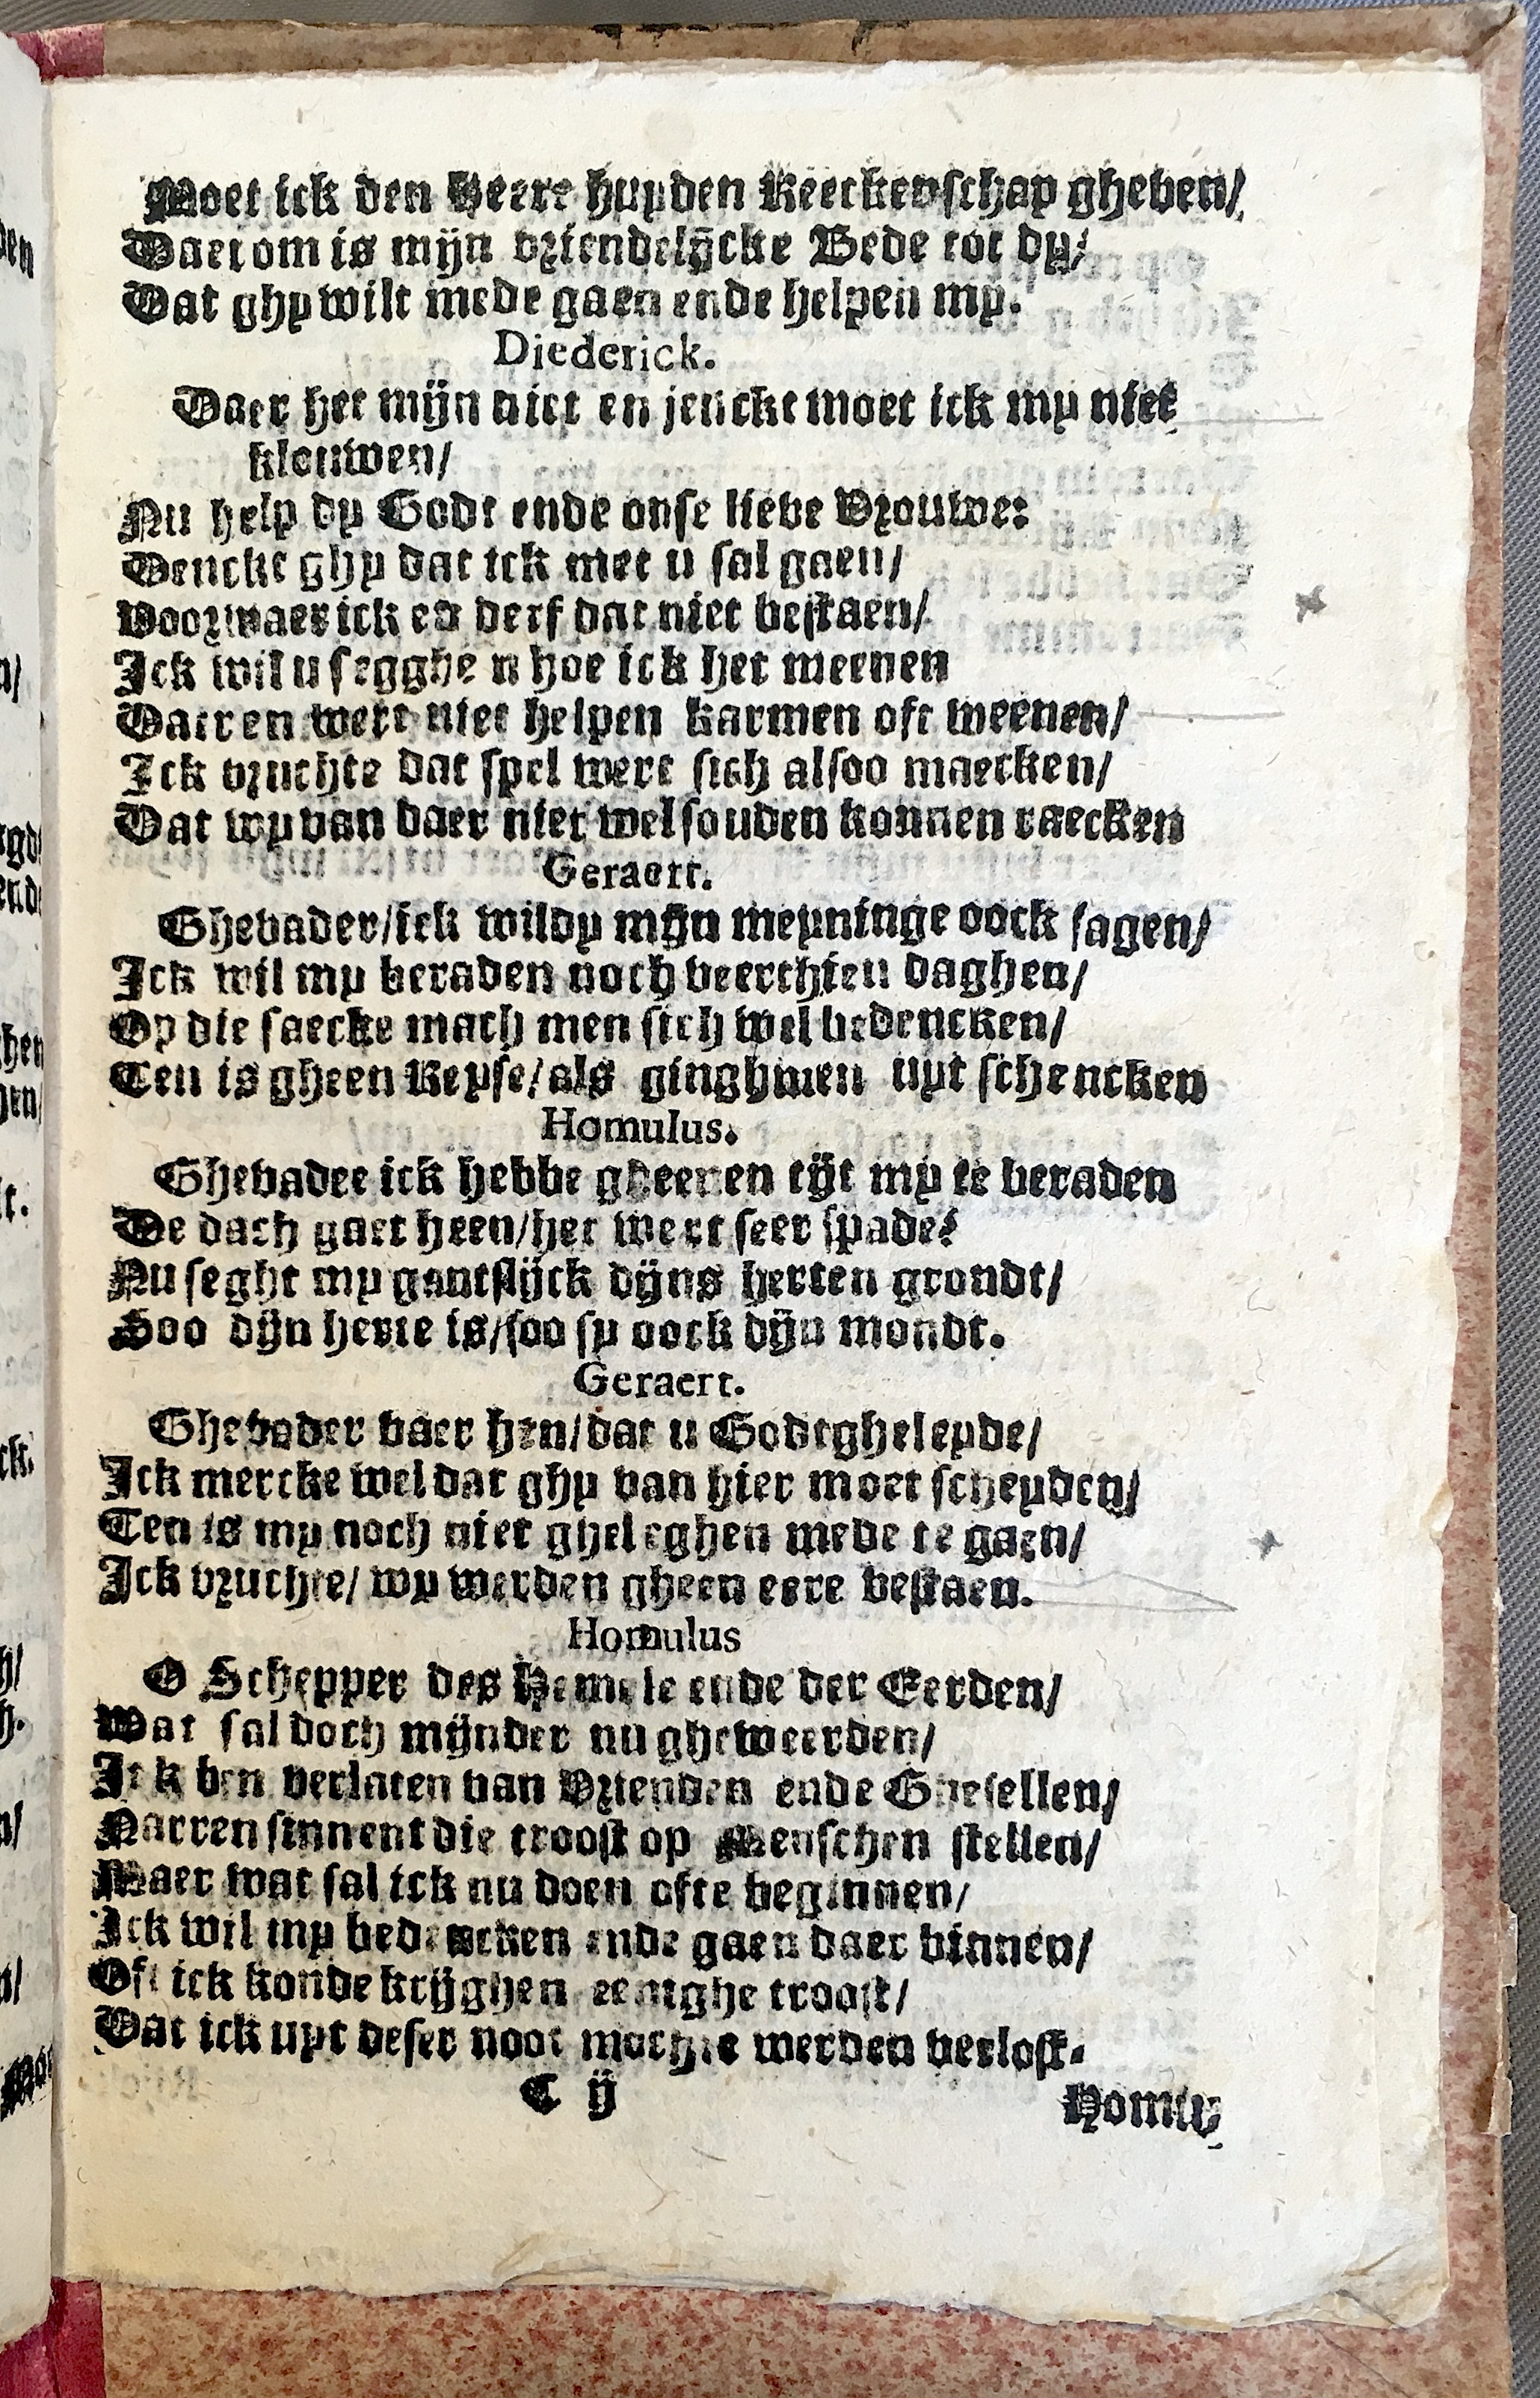 Moet ick den Heere huyden Reeckenschap gheven/
Daerom is mijn vriendelijcke Bede tot dy/
Dat ghy wilt mede gaen ende helpen my.
Diederick.
Daer het mijn niet en jenckt moet ick my niet
klouwen/
Nu help dy Godt ende onse lieve Vrouwe:
Dencke ghy dat ick met u sal gaen/
Voorwaer ick en derf dat niet bestaen/
Ick wil u segghen hoe ick het meenen
Daer en wert niet helpen karmen oft weenen/
Ick vruchte dat spel wert sich alsoo maecken/
Dat wy van daer niet wel souden konnen raecken
Geraert.
Ghevader/ick wil dy mijn meyninge oock sagen/
Ick wil my beraden noch veerthien daghen/
Op die saecke mach men sich wel bedencken/
Ten is gheen Reyse/als ginghmen uyt schencken
Homulus.
Ghevader ick hebbe gheenen tijt my te beraden
De dach gaet heen/het wert seer spade:
Nu seght my gantslijck dijns herten grondt/
Soo dijn herte is/soo sy oock dijn mondt.
Geraert.
Ghevader vaer hen/dat u Godt gheleyde/
Ick mercke wel dat ghy van hier moet scheyden/
Ten is my noch niet gheleghen mede te gaen/
Ick vruchte/ wy werden gheen eere bestaen.
Homulus
O Schepper des Hemels ende der Eerden/
Wat sal doch mijnder nu gheweerden/
Ick ben verlaten van Vrienden ende Ghesellen/
Narren sinnent die troost op Menschen stellen/
Maer wat sal ick nu doen ofte beginnen/
Ick wil my bedencken ende gaen daer binnen/
Oft ick konde krijghen eenighe troost/
Dat ick uyt deser noot mochte werden verlost.
C ij
Homu-